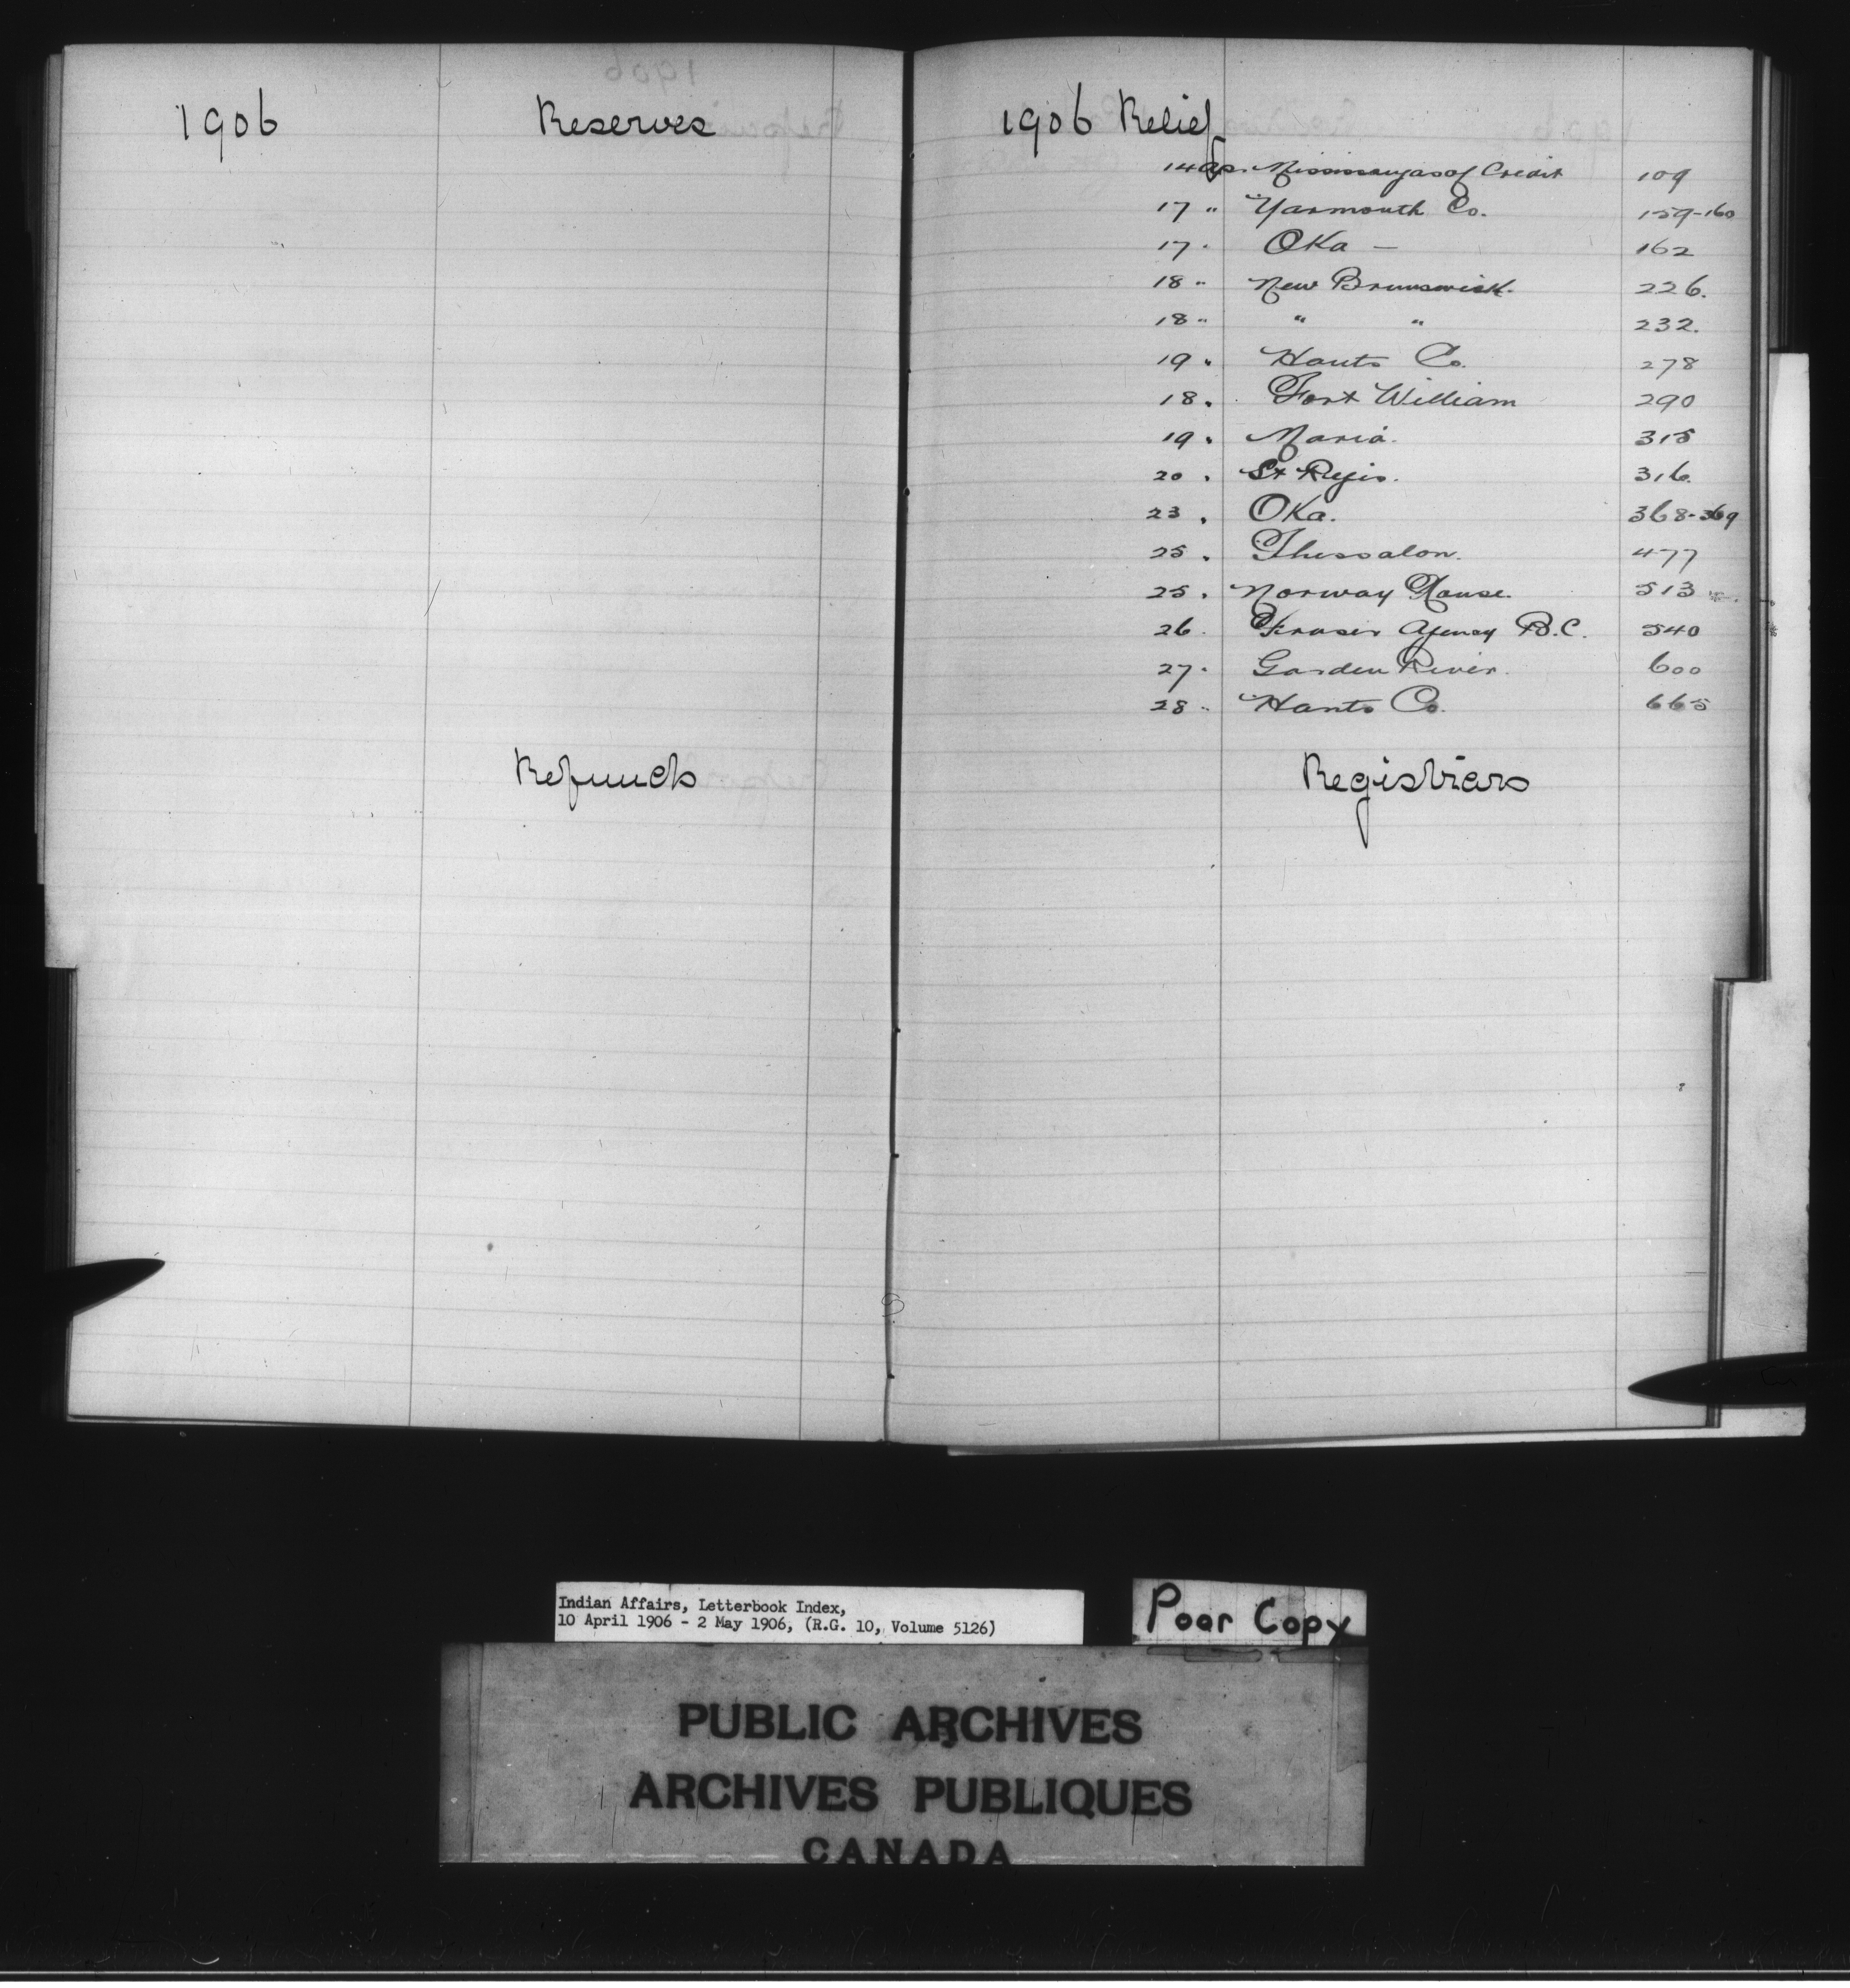 1906 Reserves
Refunds
1906 Relief
14 Ap. Mississaugas of Credit 109
17 " Yarmouth Co. 159-160
17 " Oka — 162
18 " New Brunswick. 226.
18 " " " 232.
19 " Hants Co. 278
18 " Fort William 290
19 " Maria. 315
20 " St Regis. 316.
23 " Oka. 368-369
25 " Thessalon. 477
25 " Norway House. 513
26 " Fraser Agency B.C. 540
27 " Garden River. 600
28 " Hants Co. 665
Registrars
Indian Affairs, Letterbook Index,
10 April 1906 - 2 May 1906, (R.G. 10, Volume 5126)
Poor Copy
PUBLIC ARCHIVES
ARCHIVES PUBLIQUES
CANADA